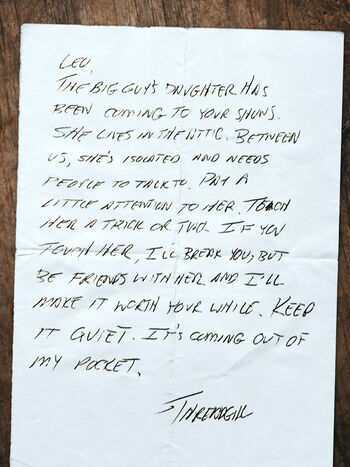 LEO,
THE BIG GUY'S DAUGHTER HAS
BEEN COMING TO YOUR SHOWS.
SHE LIVES IN THE ATTIC. BETWEEN
US, SHE'S ISOLATED AND NEEDS
PEOPLE TO TALK TO. PAY A
LITTLE ATTENTION TO HER. TEACH
HER A TRICK OR TWO. IF YOU
TOUCH HER, I'LL BREAK YOU, BUT
BE FRIENDS WITH HER AND I'LL
MAKE IT WORTH YOUR WHILE. KEEP
IT QUIET. IT'S COMING OUT OF
MY POCKET.